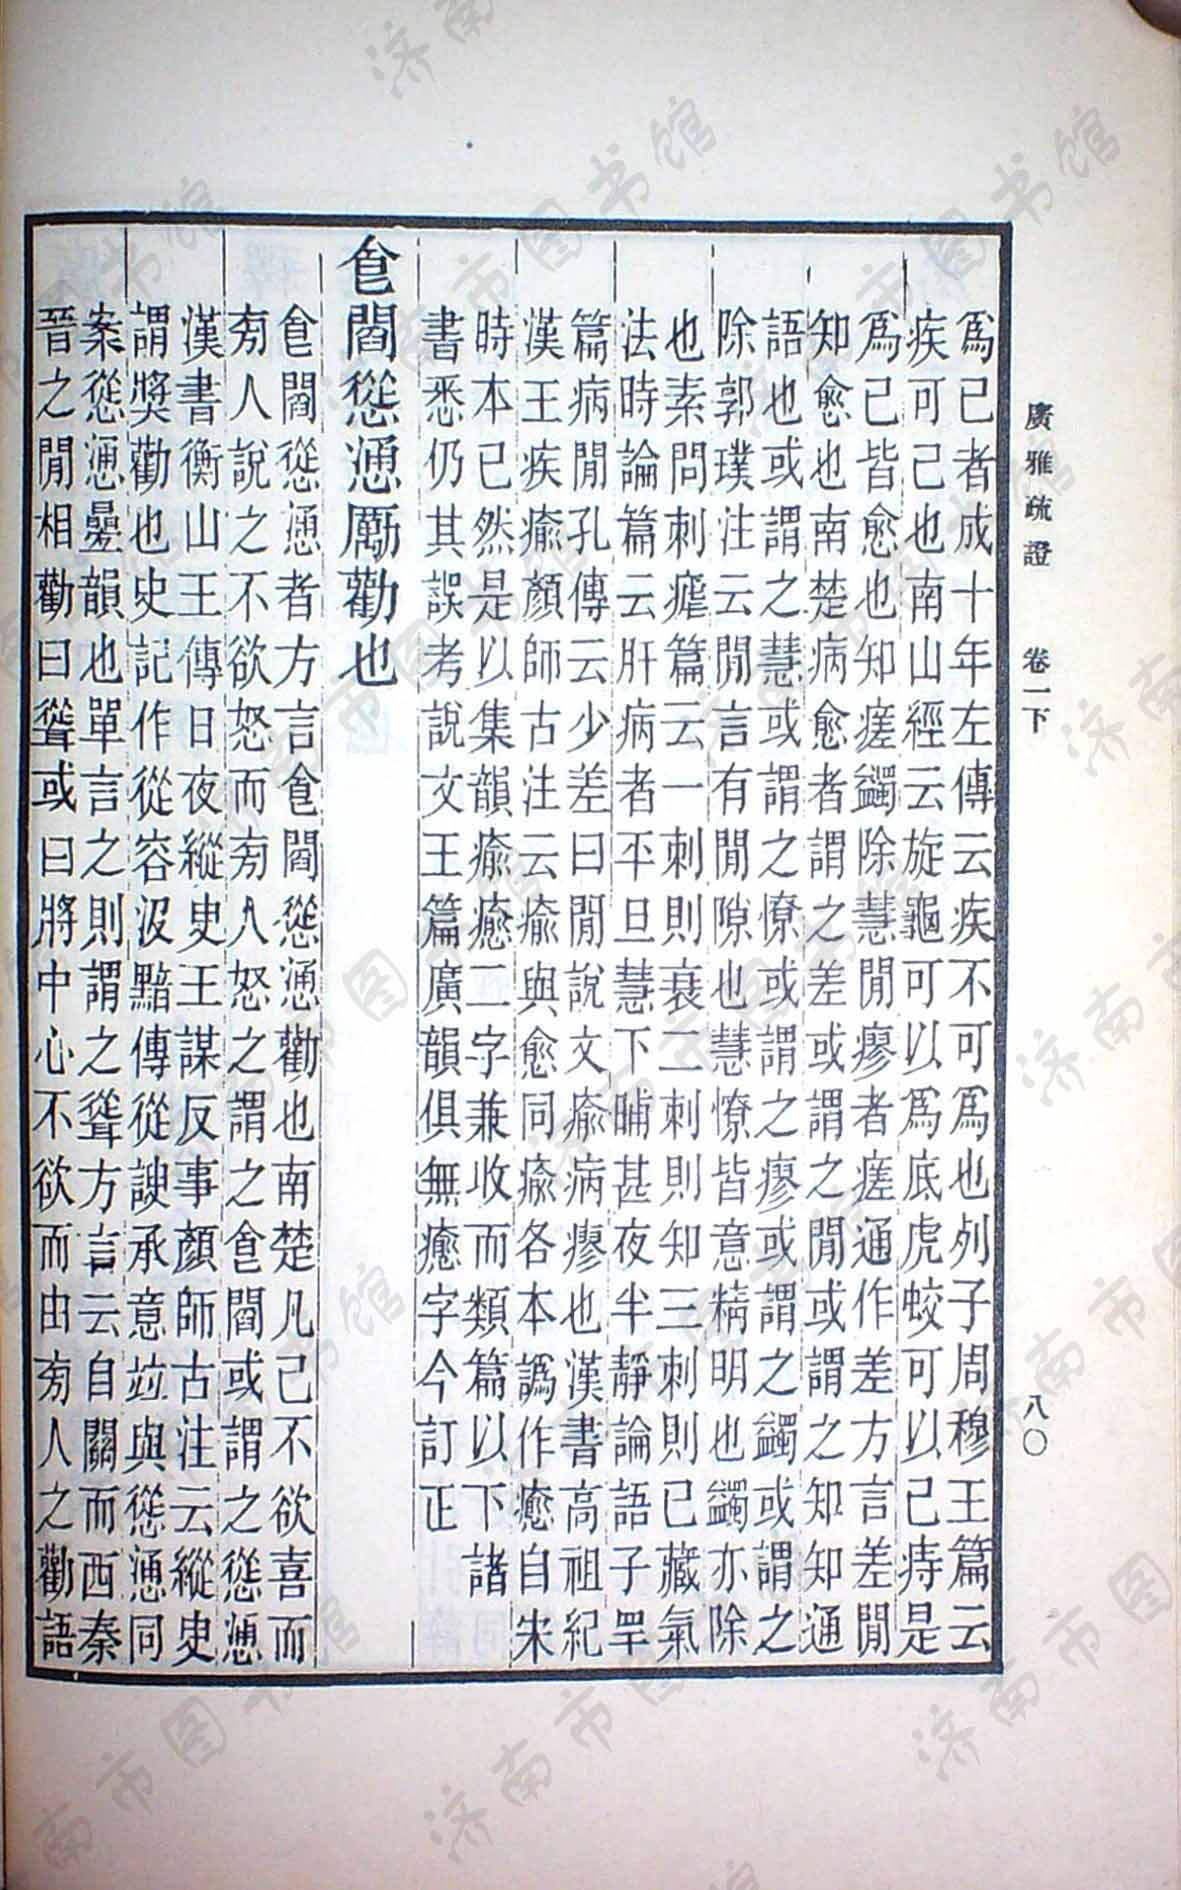 廣雅疏證　卷一下　八〇
爲已者成十年左傳云疾不可爲也列子周穆王篇云
疾可已也南山經云旋龜可以爲底虎蛟可以已痔是
爲已皆愈也知瘥蠲除慧閒瘳者瘥通作差方言差閒
知愈也南楚病愈者謂之差或謂之閒或謂之知知通
語也或謂之慧或謂之憭或謂之瘳或謂之蠲或謂之
除郭璞注云閒言有閒隙也慧憭皆意精明也蠲亦除
也素問刺瘧篇云一刺則衰二刺則知三刺則已藏氣
法時論篇云肝病者平旦慧下晡甚夜半靜論語子罕
篇病閒孔傳云少差曰閒說文瘉病瘳也漢書高祖紀
漢王疾瘉顏師古注云瘉與愈同瘉各本譌作癒自宋
時本已然是以集韻瘉癒二字兼收而類篇以下諸
書悉仍其誤考說文玉篇廣韻俱無癒字今訂正
食閻慫慂厲勸也
食閻慫慂者方言食閻慫慂勸也南楚凡己不欲喜而
旁人說之不欲怒而旁人怒之謂之食閻或謂之慫慂
漢書衡山王傳日夜縱臾王謀反事顏師古注云縱臾
謂獎勸也史記作從容汲黯傳從諛承意竝與慫慂同
案慫慂疊韻也單言之則謂之聳方言云自關而西秦
晉之閒相勸曰聳或曰將中心不欲而由旁人之勸語
济南市图书馆